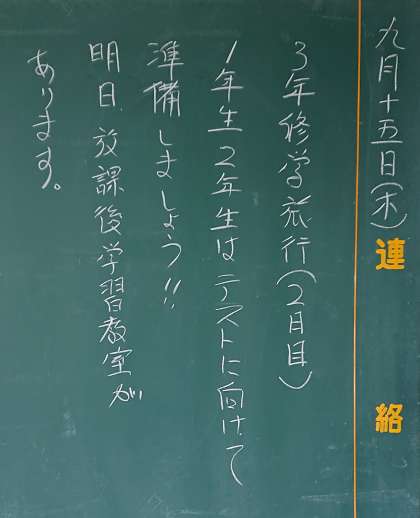 九月十五日(木)
連絡
3年修学旅行(2日目)
1年生2年生はテストに向けて
準備しましょう!!
明日、放課後学習教室が
あります。